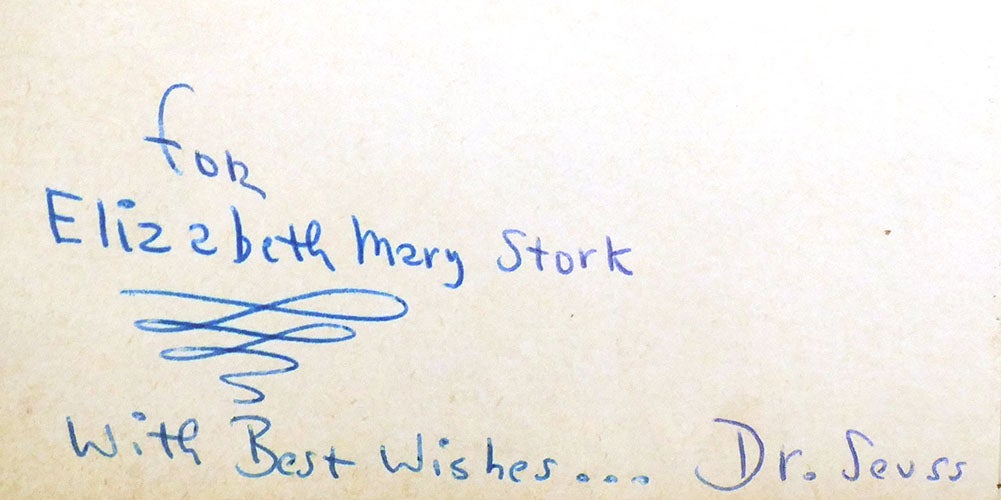 for
Elizabeth Mary Stork
With Best Wishes... Dr. Seuss